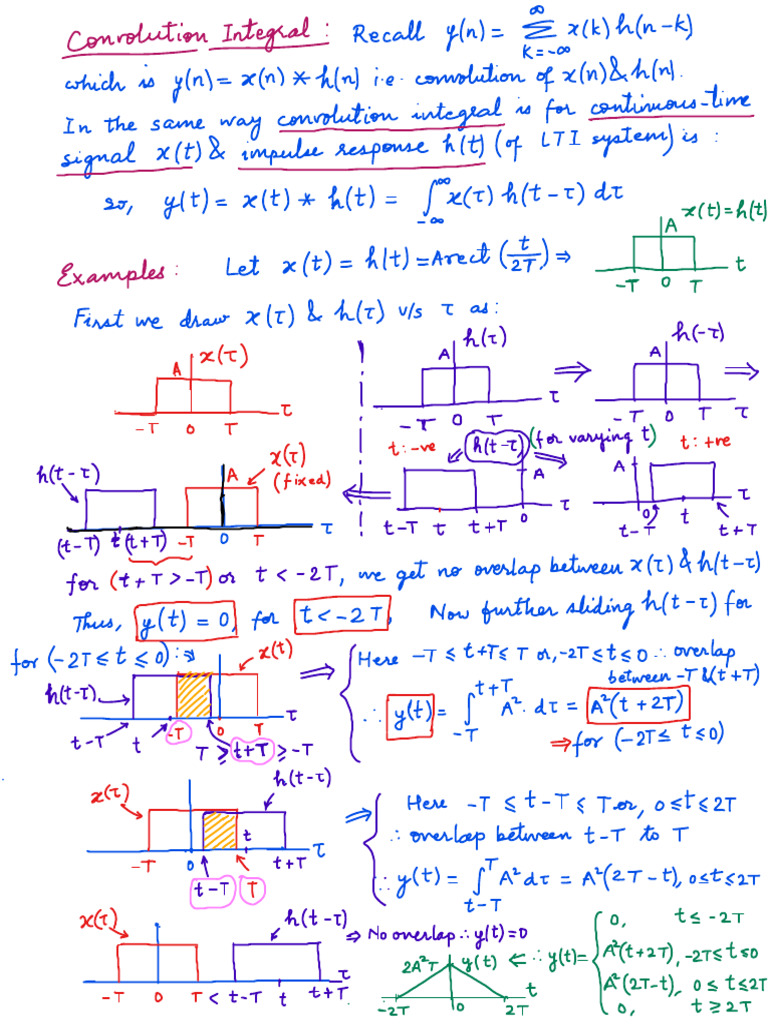 Convolution Integral : Recall y(n) = ∞∑k=-∞ x(k) h(n-k)
which is y(n) = x(n) * h(n) i.e. convolution of x(n) & h(n).
In the same way convolution integral is for continuous-time
signal x(t) & impulse response h(t) (of LTI system) is :
so, y(t) = x(t) * h(t) = ∫-∞^∞ x(τ) h(t-τ) dτ
x(t) = h(t)
A
-T 0 T t
Examples : Let x(t) = h(t) = A rect (t/2T) ⇒
First we draw x(τ) & h(τ) v/s τ as :
x(τ)
A
-T 0 T τ
h(τ)
A
-T 0 T τ
⇒
h(-τ)
A
-T 0 T τ
⇒
t : -ve h(t-τ) (for varying t) t : +ve
A
t-T t t+T 0 τ
A
t-T 0 t t+T τ
h(t-τ)
A x(τ)
(fixed)
(t-T) t (t+T) -T 0 T τ
for (t+T > -T) or t < -2T, we get no overlap between x(τ) & h(t-τ)
Thus, y(t) = 0, for t < -2T, Now further sliding h(t-τ) for
for (-2T ≤ t ≤ 0) :
x(t)
h(t-τ)
t-T t -T 0 T τ
T ≥ t+T ≥ -T
⇒ Here -T ≤ t+T ≤ T or, -2T ≤ t ≤ 0 ∴ overlap
between -T & (t+T)
∴ y(t) = ∫-T^t+T A². dτ = A²(t + 2T)
⇒ for (-2T ≤ t ≤ 0)
x(τ) h(t-τ)
-T 0 t t+T τ
t-T T
⇒ Here -T ≤ t-T ≤ T or, 0 ≤ t ≤ 2T
∴ overlap between t-T to T
∴ y(t) = ∫t-T^T A² dτ = A²(2T-t), 0 ≤ t ≤ 2T
x(τ) h(t-τ)
-T 0 T < t-T t t+T τ
⇒ No overlap ∴ y(t) = 0
2A²T y(t)
-2T 0 2T t
⇐ ∴ y(t) =
0, t ≤ -2T
A²(t+2T), -2T ≤ t ≤ 0
A²(2T-t), 0 ≤ t ≤ 2T
0, t ≥ 2T